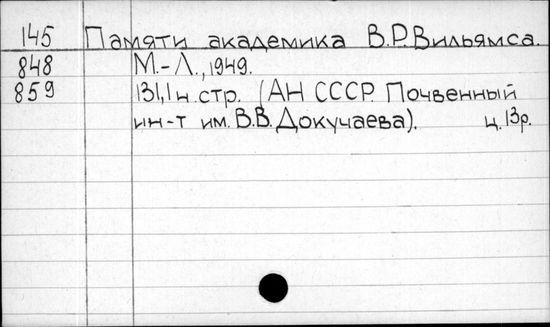 145 Памяти академика В.Р.Вильямса.
848 М.-Л., 1949.
859 131,1 н.стр. (АН СССР. Почвенный
ин-т им. В.В. Докучаева). ц. 13р.